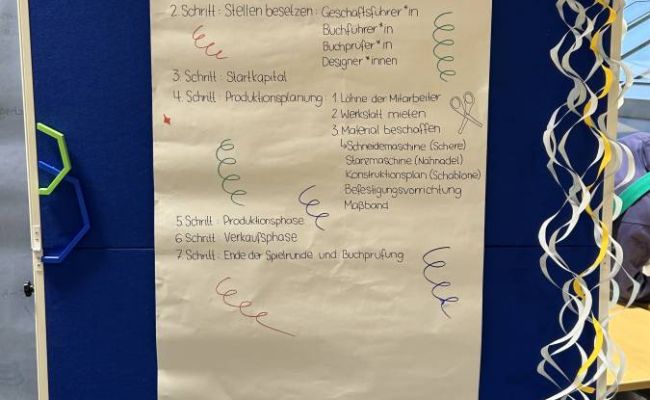 2. Schritt: Stellen besetzen: Geschäftsführer*in
Buchführer*in
Buchprüfer*in
Designer*innen
3. Schritt: Startkapital
4. Schritt: Produktionsplanung 1. Löhne der Mitarbeiter
2. Werkstatt mieten
3. Material beschaffen
↳Schneidemaschine (Schere)
Stanzmaschine (Nähnadel)
Konstruktionsplan (Schablone)
Befestigungsvorrichtung
Maßband
5. Schritt: Produktionsphase
6. Schritt: Verkaufsphase
7. Schritt: Ende der Spielrunde und Buchprüfung